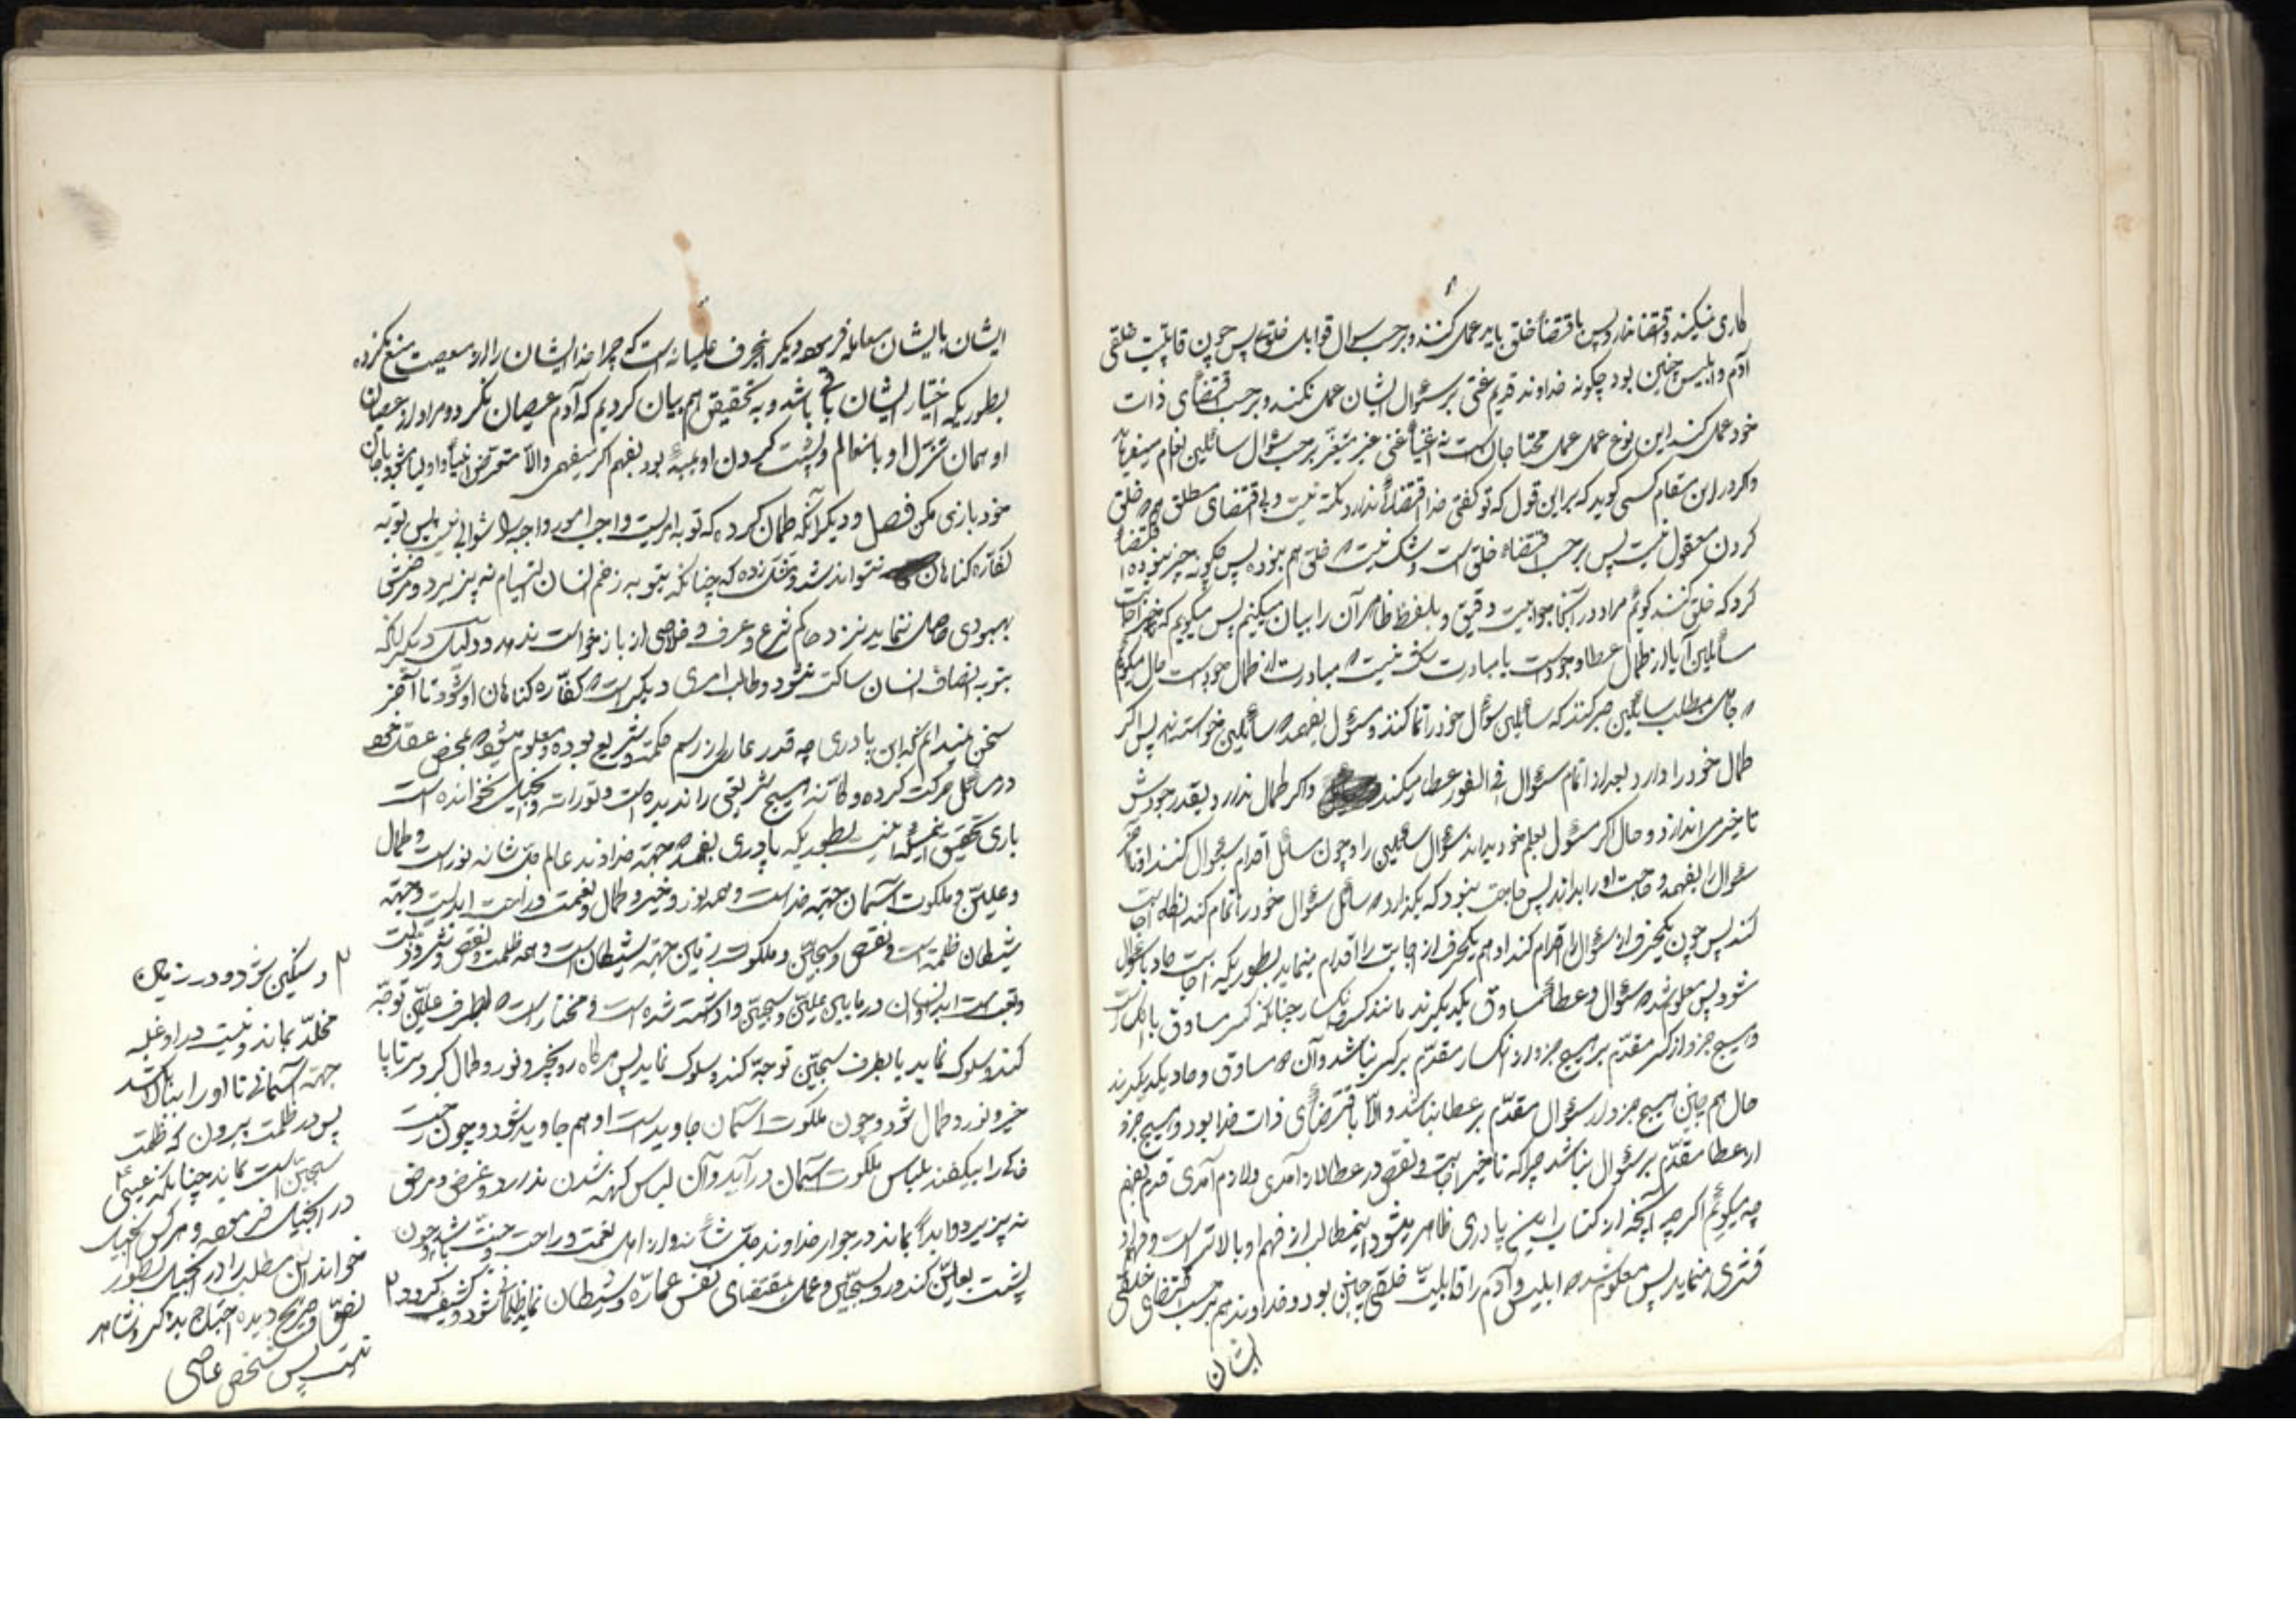 کاری نمیکند و اقتضا ندارد پس باقتضاء خلق باید عمل کند و بر حسب سوال قوابل خلق پس چون قابلیت خلقی
آدم و ابلیس چنین بود چگونه خداوند قدیم غنی بر سئوال ایشان عمل نکند و بر حسب اقتضای ذات
خود عمل کند این نوع عمل عمل محتاجان است نه اغنیا غنی غیر متغیر بر حسب سؤال سائلین انعام میفرماید
و اگر در این مقام کسی گوید که بر این قول که تو گفتی خدا اقتضا ندارد نیست و بی اقتضای مطلق خلق
کردن معقول نیست پس بر حسب اقتضاء خلق است و شک نیست که خلق هم نبوده پس چگونه چیز نبوده اقتضا
کرد که خلق کند گوئم مراد در آنجا جوابیست دقیق و بلفظ ظاهر آن را بیان میکنیم پس میگوییم که تاخیر اجابت
سائلین آیا از کمال عطا و جود است یا مبادرت شک نیست که مبادرت از کمال جود است حال میگوئم
که صاحب مطلب سائلین صبر کند که سائلین سؤال خود را تمام کنند و مسئول بفهمد که سائلین خواسته اند پس اگر
کمال خود را دارد بعد از اتمام سئوال فی الفور عطا میکند و اگر کمال ندارد بقدر جودش
تاخیر می اندازد و حال اگر مسئول بعلم خود میداند سئوال سائلین را و چون سائل اقدام بسئوال کند او تا آخر
سئوال را بفهمد و حاجت او را بداند پس حاجت نبود که بگذارد که سائل سئوال خود را تمام کند آنگاه اجابت
کند پس چون یکحرف از سئوال را اقدام کند او هم یکحرف از اجابت را اقدام مینماید بطوریکه اجابت صادف با سئوال
شود پس معلوم شد که سئوال و عطا مساوق یکدیگرند مانند کسر و انکسار چنانکه کسر مساوق با انکسار است
و هیچ جزو از کسر مقدّم بر هیچ جزو از انکسار مقدّم بر کسر نباشد و آن مساوق و یکدیگرند
حال هم چنین هیچ جزو از سئوال مقدّم بر عطا نباشد و الّا باقتضای ذات خدا بود و هیچ جزو
از عطا مقدّم بر سئوال نباشد چرا که تاخیر اجابت و نقص در عطا لازم آمدی و لازم آمدی قدم بفهم
چه میگوئم اگر چه آنچه از کتاب این پادری ظاهر میشود اینمطالب از فهم او بالاتر است و
مینماید پس معلوم شد که ابلیس و آدم را قابلیّت خلقی چنین بود و خداوند هم بر حسب اقتضای خلقی
ایشان
ایشان با ایشان معامله فرمود دیگر اینحرف عامیانه است که چرا خدا ایشان را از معصیت منع نکرده
بطوریکه اختیار ایشان باقی باشد و به تحقیق هم بیان کردیم که آدم عصیان نکرد و مراد از عصیان
او همان تنزل او باینعالم و پشت کردن او بمبدء بود بفهم اگر میفهمی والّا متعرض انبیا و اولیا مشو و با جان
خود بازی مکن فصل و دیگر آنکه گمان کرده که توبه امریست واجب و امور واجبه را ثوابی نیست پس توبه
کفّاره گناهان نتواند شد و مثل زده که چنانکه بتوبه زخم انسان التیام نه پذیرد و مریض
بهبودی حاصل ننماید نزد حاکم شرع و عرف و خلاصی از بازخواست ندهد و دلیل دیگر آنکه
بتوبه انصاف انسان ساکت نشود و طالب امری دیگر است که کفّاره گناهان او شود تا آخر
سخن نمیدانم که این پادری چه قدر عاری از رسم حکمت و شریعت بوده و معلوم میشود که بمحض عقل خود
در مسائل حرکت کرده و کانّه هیچ شریعتی را ندیده است و تورات و انجیل نخوانده است
باری تحقیق این مسئله اینست بطوریکه پادری بفهمد که جهة خداوند عالم جل شانه نور است و کمال
و علّیّین و ملکوت آسمان جهة خداست و همه نور و خیر و کمال و نعمت و راحت ابدیست و جهة
شیطان ظلمة است و نقص و سجّین و ملکوت زمین جهة شیطان است و همه ظلمت و نقص و شرّ و
و تعب است و انسان در مابین علّیّین و سجّین واداشته شده است و مختار است که بطرف علّیّین توجّه
کند و سلوک نماید یا بطرف سجّین توجّه کند و سلوک نماید پس هر گاه رو بخیر و نور و کمال کرد سر تا پا
خیر و نور و کمال شود و چون ملکوت آسمان جاوید است او هم جاوید شود و چون
خاکی را بیفکند بلباس ملکوت آسمان در آید و آن لباس کهنه شدن ندارد و غرض و مرض
نه پذیرد و ابدا بماند در جوار خداوند جلّ شانه و از اهل نعمت و راحت و جنّت باشد و چون
پشت بعلّیّین کند و رو بسجّین و عمل بمقتضای نفس عمّاره و شیطان نماید ظلمانی شود و کثیف گردد ۲
۲ و سنگین شود و در زمین
مخلّد بماند و نیست در او غلبه
جهة آسمانی تا او را بالا کشد
پس در ظلمت بیرون که ظلمت
سجّین است بماند چنانکه عیسی ع
در انجیل فرموده و هر کس انجیل
خوانده این مطلب را در انجیل بطور
نصّ و صریح دیده احتیاج بذکر و شاهد
نیست پس شخص عاصی